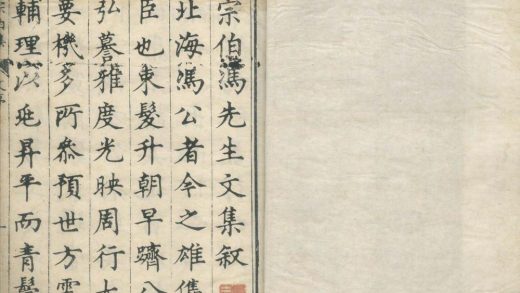 宗伯馮先生文集叙
北海馮公者今之雄儁
臣也束髮升朝早躋八
弘謩雅度光映周行
要機多所叅預世方
輔理以昇平而青鬢